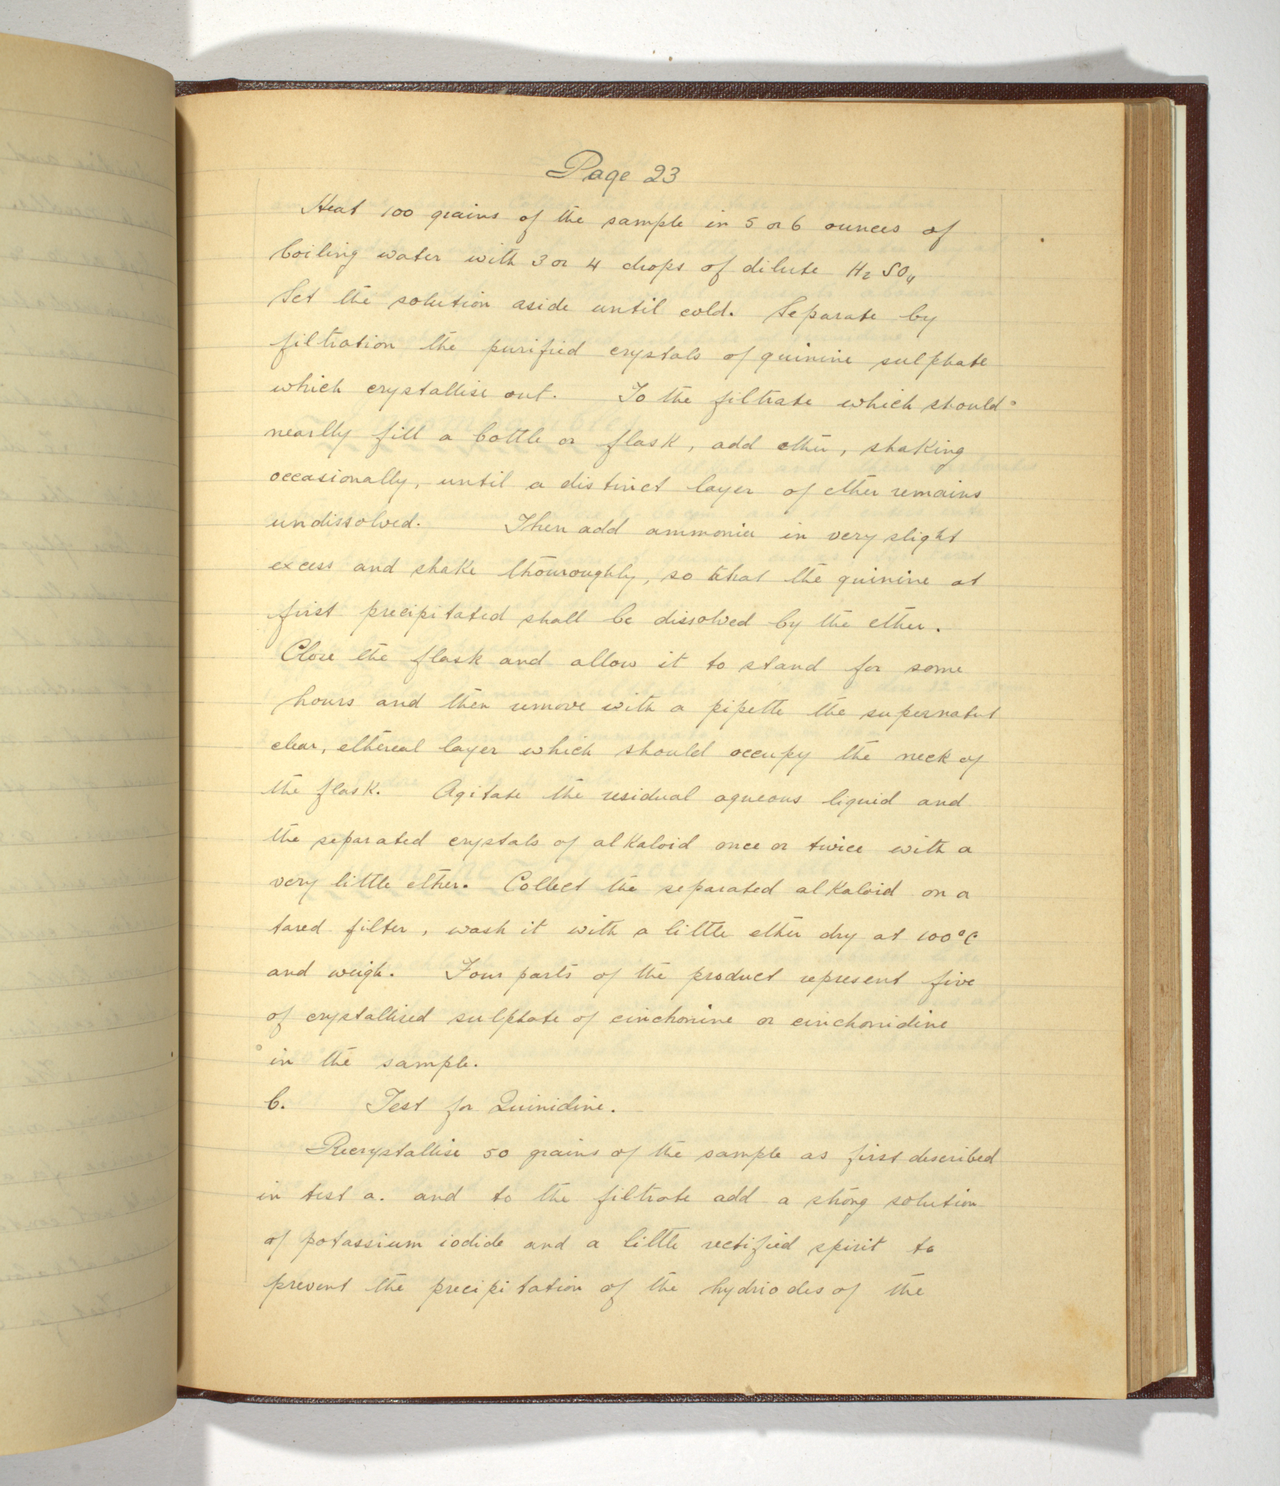 Page 23
Heat 100 grains of the sample in 5 or 6 ounces of
boiling water with 3 or 4 drops of dilute H₂SO₄
Set the solution aside until cold. Separate by
filtration the purified crystals of quinine sulphate
which crystallise out. To the filtrate which should
nearlly fill a bottle or flask, add ether, shaking
occasionally, until a distinct layer of ether remains
undissolved. Then add ammonia in very slight
excess and shake thouroughly, so that the quinine at
first precipitated shall be dissolved by the ether.
Close the flask and allow it to stand for some
hours and then remove with a pipette the supernatant
clear, ethereal layer which should occupy the neck of
the flask. Agitate the residual aqueous liquid and
the separated crystals of alkaloid once or twice with a
very little ether. Collect the separated alkaloid on a
tared filter, wash it with a little ether dry at 100°C
and weigh. Four parts of the product represent five
of crystallised sulphate of cinchonine or cinchonidine
in the sample.
b. Test for Quinidine.
Recrystallise 50 grains of the sample as first described
in test a. and to the filtrate add a strong solution
of potassium iodide and a little rectified spirit to
prevent the precipitation of the hydriodes of the